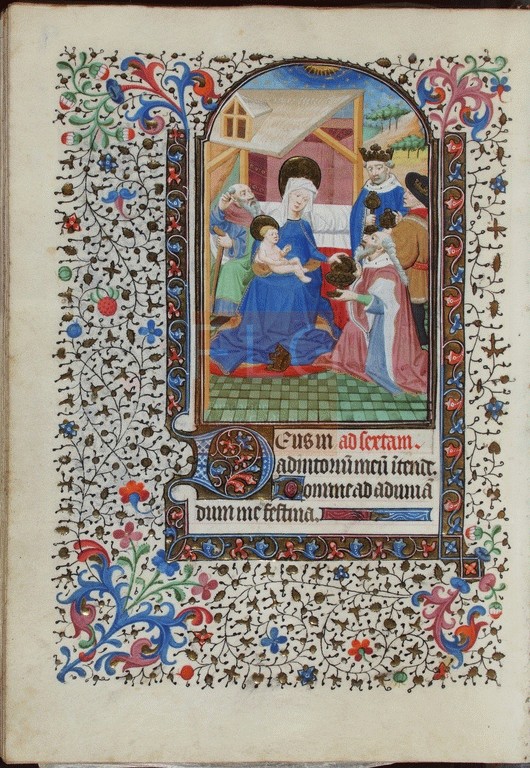 DEus in ad sextam.
adiutoriū meū ītende.
Domine ad adiuuā
dum me festina.